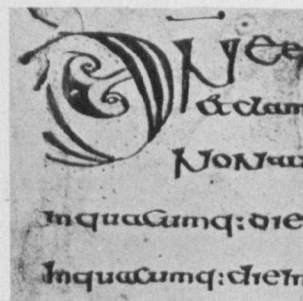 DNE e
et clam
Non au
inquacumq: die
Inquacumq: die in